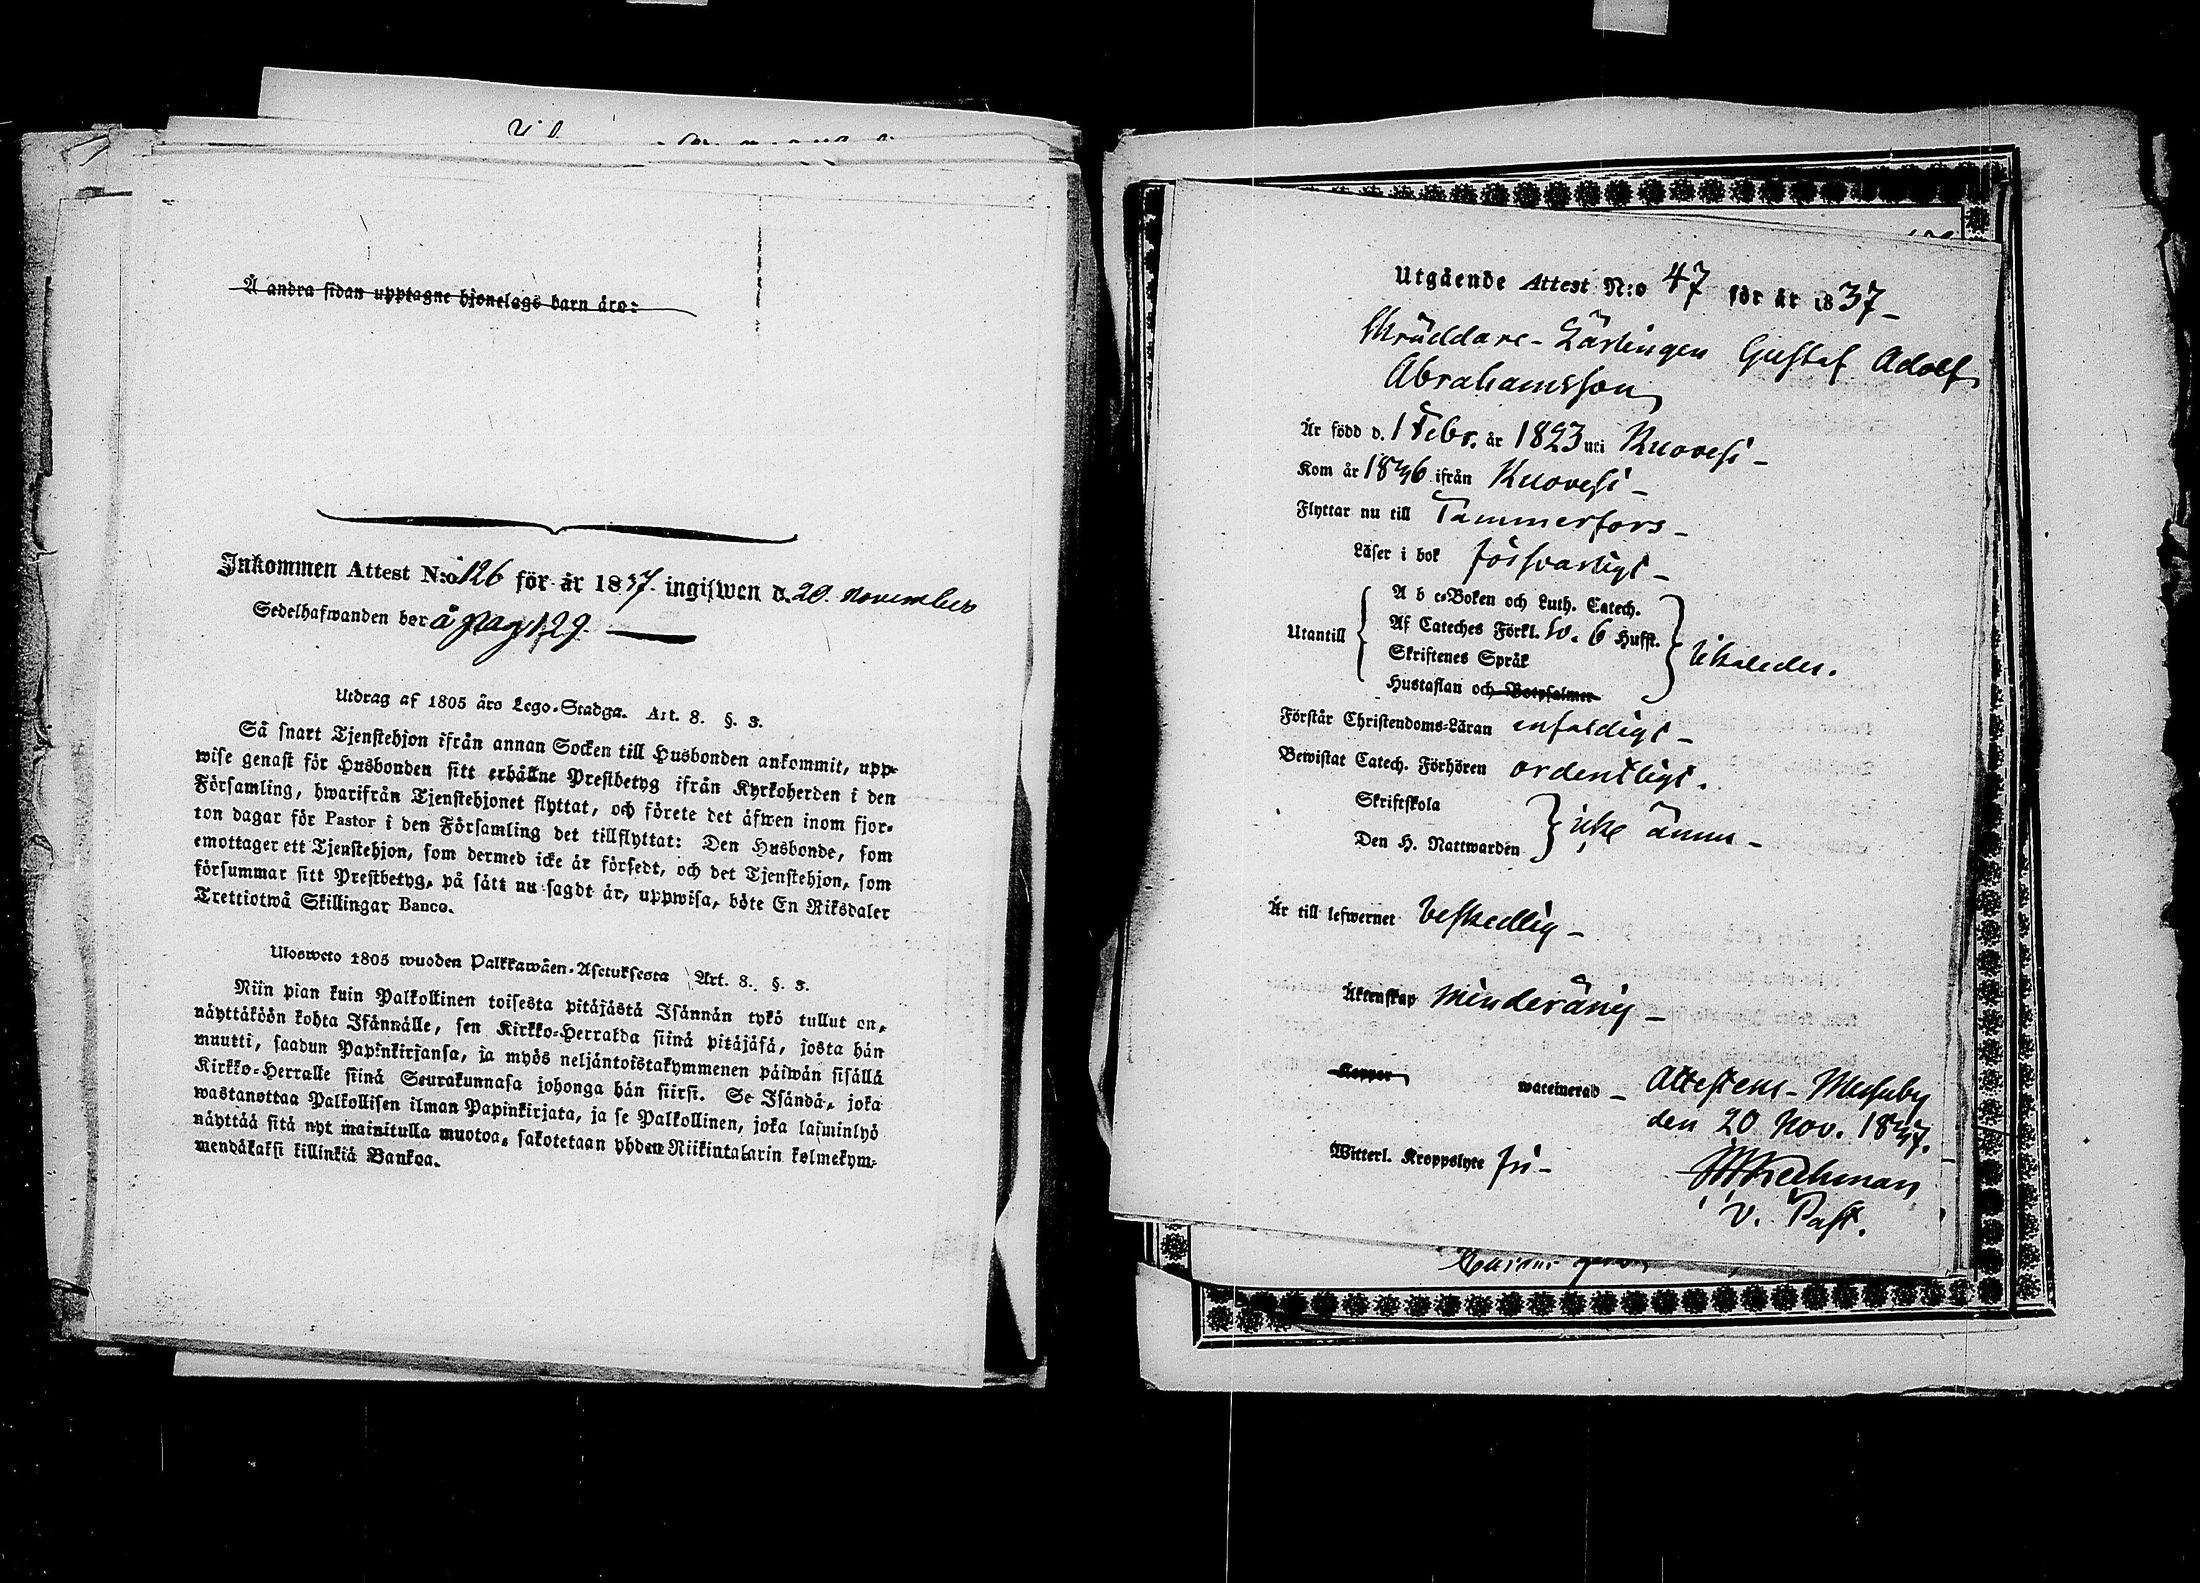 Å andra sidan upptagne hjonelags barn äro:
Inkommen Attest N:o 126 för år 1837. ingifwen d. 20. November
Sedelhafwanden bor å pag 129.
Utdrag af 1805 års Lego-Stadga. Art. 8. §. 3.
Så snart Tjenstehjon ifrån annan Socken till Husbonden ankommit, upp-
wise genast för Husbonden sitt erhållne Prestbetyg ifrån Kyrkoherden i den
Församling, hwarifrån Tjenstehjonet flyttat, och förete det äfwen inom fjor-
ton dagar för Pastor i den Församling det tillflyttat: Den Husbonde, som
emottager ett Tjenstehjon, som dermed icke är försedt, och det Tjenstehjon, som
försummar sitt Prestbetyg, på sätt nu sagdt är, uppwisa, böte En Riksdaler
Trettiotwå Skillingar Banco.
Ulosweto 1805 wuoden Palkkawäen-Asetuksesta Art. 8. §. 3.
Niin pian kuin Palkollinen toisesta pitäjästä Isännän tykö tullut on,
näyttäköön kohta Isännälle, sen Kirkko-Herralda siinä pitäjäsä, josta hän
muutti, saadun Papinkirjansa, ja myös neljäntoistakymmenen päiwän sisällä
Kirkko-Herralle siinä Seurakunnasa johonga hän siirsi. Se Isändä, joka
wastanottaa Palkollisen ilman Papinkirjata, ja se Palkollinen, joka laiminlyö
näyttää sitä nyt mainitulla muotoa, sakotetaan yhden Riikintalarin kolmekym-
mendäkaksi killinkiä Bankoa.
Utgående Attest N:o 47 för år 1837
Skräddare-Lärlingen Gustaf Adolf
Abrahamsson
Är född d. 1 Febr. år 1823 uti Ruovesi
Kom år 1836 ifrån Ruovesi
Flyttar nu till Tammerfors
Läser i bok försvarligt
A b c-Boken och Luth. Catech.
Utantill Af Cateches Förkl. tv. 6 Hufst.
Skriftenes Språk
Hustaflan och Botpsalmer
Förstår Christendoms-Läran enfaldigt
Bewistat Catech. Förhören ordentligt.
Skriftskola
icke ännu
Den H. Nattwarden
Är till lefwernet beskedlig
Äktenskap minderårig
Koppor waccinerad Attesteras Messuby
den 20 Nov. 1837.
Witterl. Kroppslyte fri
v. Past.